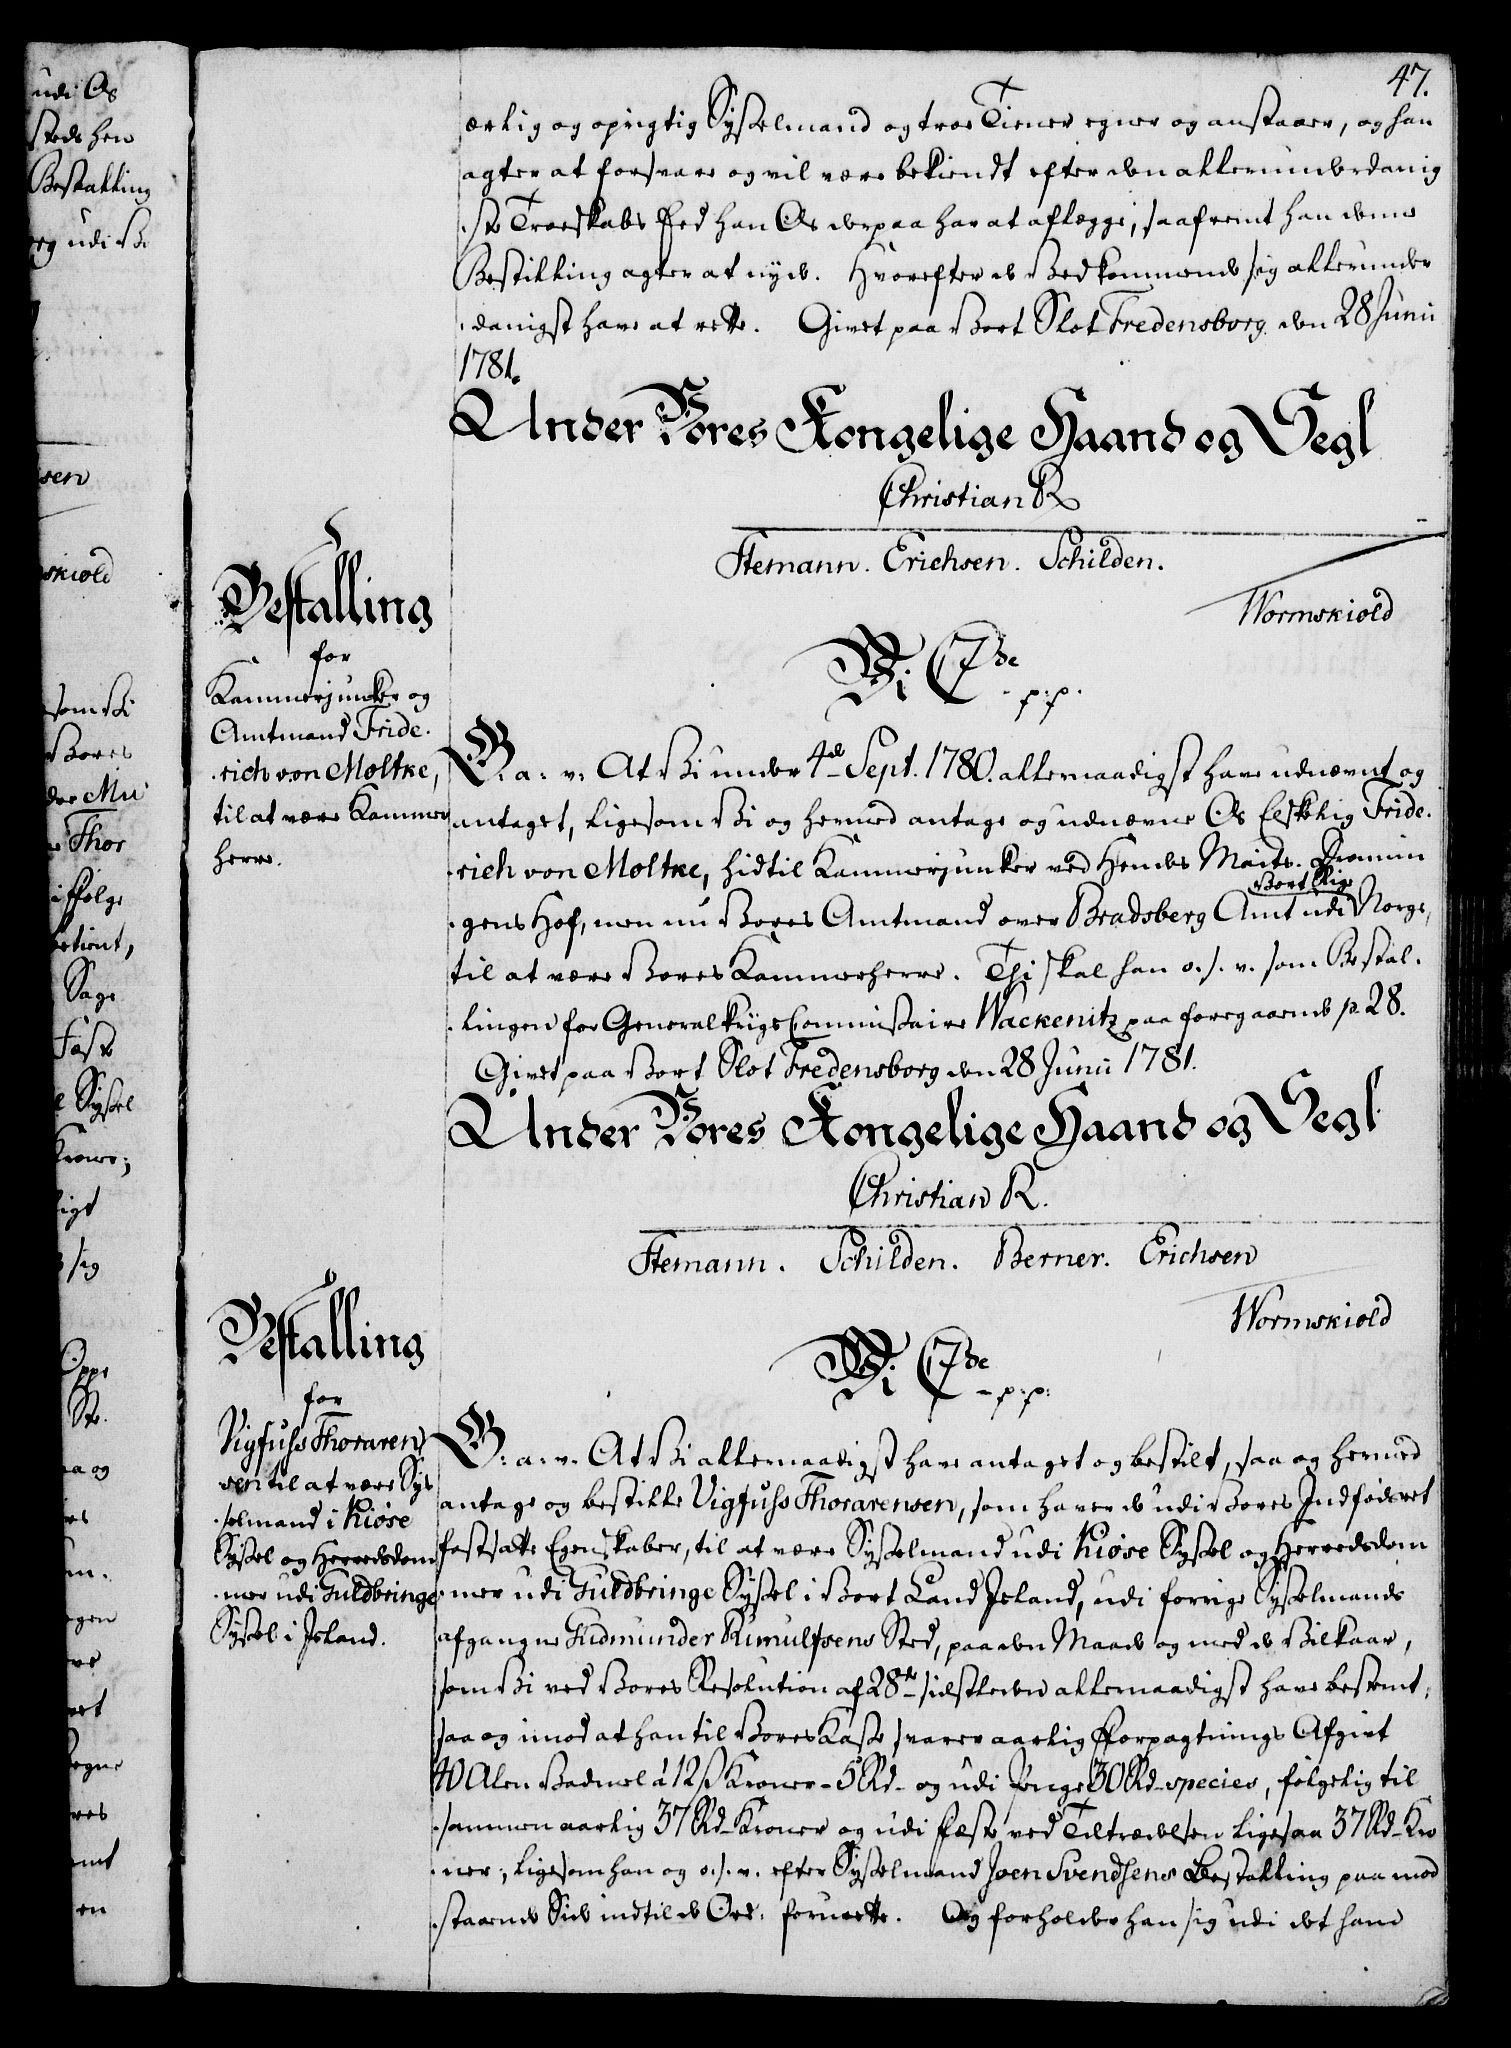 47.
ærlig og oprigtig Sysselmand og troe Tiener egner og anstaaer, og han
agter at forsvare og vil være bekiendt efter den allerunderdanig
ste Troeskabs Eed han Os derpaa har at aflægge, saafremt han denne
Bestilling agter at nyde. Hvorefter de Vedkommende sig allerunder
danigst have at rette. Givet paa Vort Slot Fredensborg den 28 Junii
1781.
Under Vores Kongelige Haand og Segl
Christian R
Stemann. Erichsen. Schilden.
Wormskiold
Bestalling
for
Kammerjunker og
Amtmand Fride.
rich von Moltke,
til at være Kammer
herre.
Vi C 7de
p:p.
G. a. v. At Vi under 4de Sept. 1780. allernaadigst have udnævnt og
antaget, ligesom Vi og hermed antage og udnævne Os Elskelig Fride.
rich von Moltke, hidtil Kammerjunker ved Hendes Maits. Dronnin
Vort Rige
gens Hof, men nu Vores Amtmand over Bradsberg Amt udi Norge,
til at være Vores Kammerherre. Thi skal han o. s. v. som Bestal.
lingen for General krigs Commissaire Wackenitz paa foregaaende p. 28.
Givet paa Vort Slot Fredensborg den 28 Junii 1781.
Under Vores Kongelige Haand og Segl
Christian R.
Stemann. Schilden. Berner. Erichsen
Wormskiold
Bestalling
for
Vigfuss Thoraren
sen til at være Sys
selmand i Kiøse
Syssel og Herredsdom
mer udi Guldbringe
Syssel i Island.
Vi C 7de
p:p:
G: a: v. At Vi allernaadigst have antaget og bestilt, saa og hermed
antage og bestille Vigfuss Thorarensen, som haver de udi Vores Indføds ret
fastsatte Egenskaber, til at være Sysselmand udi Kiøse Syssel og Herredsdom
mer udi Guldbringe Syssel i Vort Land Island, udi forrige Sysselmands
afgangne Gudmunder Runulfsens Sted, paa den Maade og med de Vilkaar,
som Vi ved Vores Resolution af 28de sidstleden allernaadigst have bestemt,
saa og imod at han til Vores Kasse svarer aarlig Forpagtnings Afgivt
40 Alen Vadmel á 12 s Kroner - 5 Rd - og udi Penge 30 Rd species, følgelig til
sammen aarlig 37 Rd Kroner og udi Fæste ved Tiltrædelsen ligesaa 37 Rd Kro
ner, ligesom han og o. s. v. efter Sysselmand Joen Svendsens Bestalling paa mod
staaende Side indtil de Ord: forrette. Og forholder han sig udi det ham